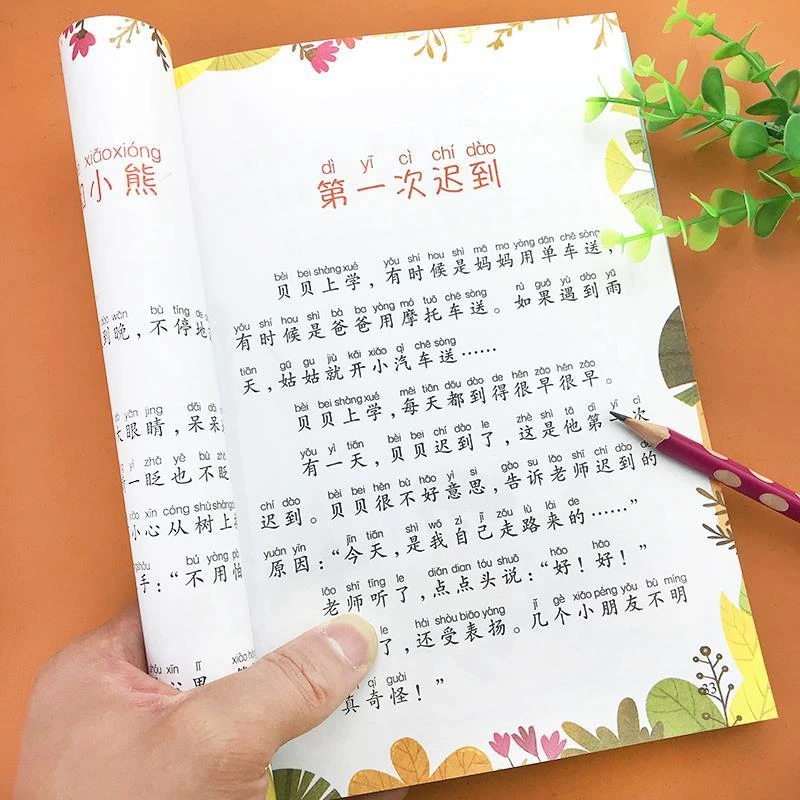 xiǎoxióng
小熊
dào wǎn bù tíng de
到晚，不停地
yǎn jīng dāi dāi
大眼睛，呆呆
yì zhǎ yě bù zhǎ
一眨也不眨
xiǎo xīn cóng shù shàng
小心从树上
bú yòng pà
手：“不用怕
dì yī cì chí dào
第一次迟到
bèi bei shàng xué yǒu shí hou shì mā ma yòng dān chē sòng
贝贝上学，有时候是妈妈用单车送，
yǒu shí hou shì bà ba yòng mó tuō chē sòng rú guǒ yù dào yǔ
有时候是爸爸用摩托车送。如果遇到雨
tiān gū gu jiù kāi xiǎo qì chē sòng
天，姑姑就开小汽车送……
bèi bei shàng xué měi tiān dōu dào de hěn zǎo hěn zǎo
贝贝上学，每天都到得很早很早。
yǒu yì tiān bèi bei chí dào le zhè shì tā dì yī cì
有一天，贝贝迟到了，这是他第一次
chí dào bèi bei hěn bù hǎo yì si gào su lǎo shī chí dào de
迟到。贝贝很不好意思，告诉老师迟到的
yuán yīn jīn tiān shì wǒ zì jǐ zǒu lù lái de
原因：“今天，是我自己走路来的……”
lǎo shī tīng le diǎn dian tóu shuō hǎo hǎo
老师听了，点点头说：“好！好！”
hái shòu biǎo yáng jǐ gè xiǎo péng yǒu bù míng
了，还受表扬。几个小朋友不明
qí guài
真奇怪！”
33